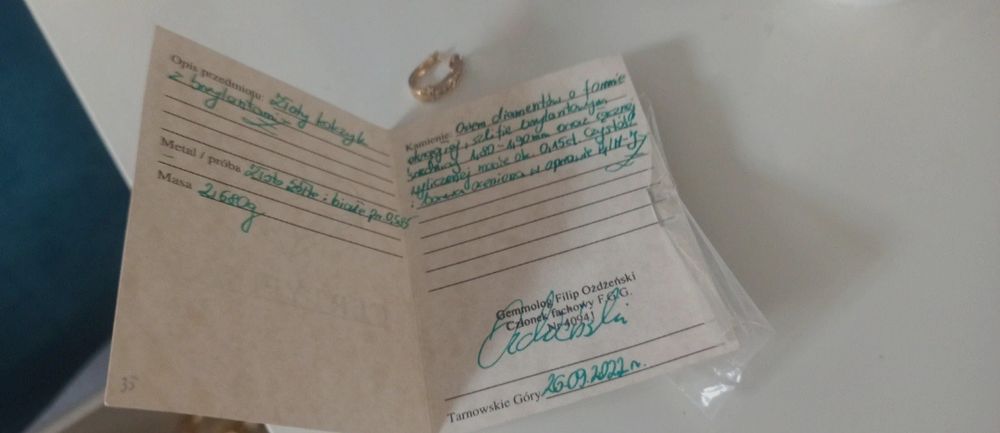 Opis przedmiotu: Złoty kolczyk
z brylantami
Metal / próba Złoto żółte i białe pr. 0,585
Masa 2,680g
35
Kamienie: Osiem diamentów o formie
okrągłej, szlifie brylantowym
średnicy 1,80-1,90mm oraz łącznej
wyliczonej masie ok. 0,15ct. Czystość
i barwa oceniona w oprawie
Gemmolog Filip Ozdżeński
Członek fachowy F.G.G.
Nr 40941
Tarnowskie Góry 26.09.2022 r.